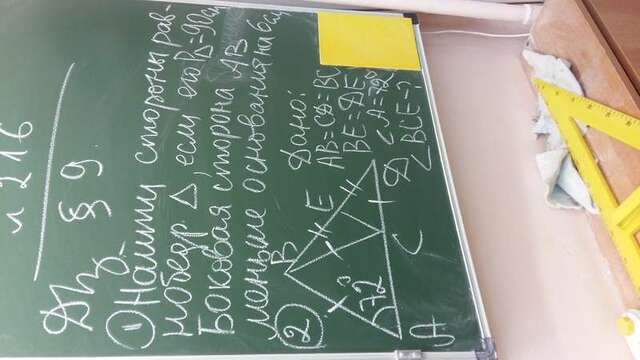 л 216
Д/з § 9.
① Найти стороны рав-
нобедр △, если его P△=90см
Боковая сторона AB
меньше основания на 6см
②
B
E
72°
A
C
D
Дано:
AB=CD=BC
BE=DE
∠A=72°
∠BCE-?